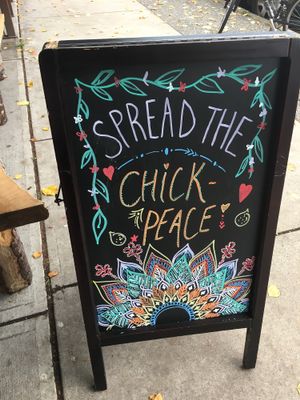 SPREAD THE
CHICK-
PEACE!